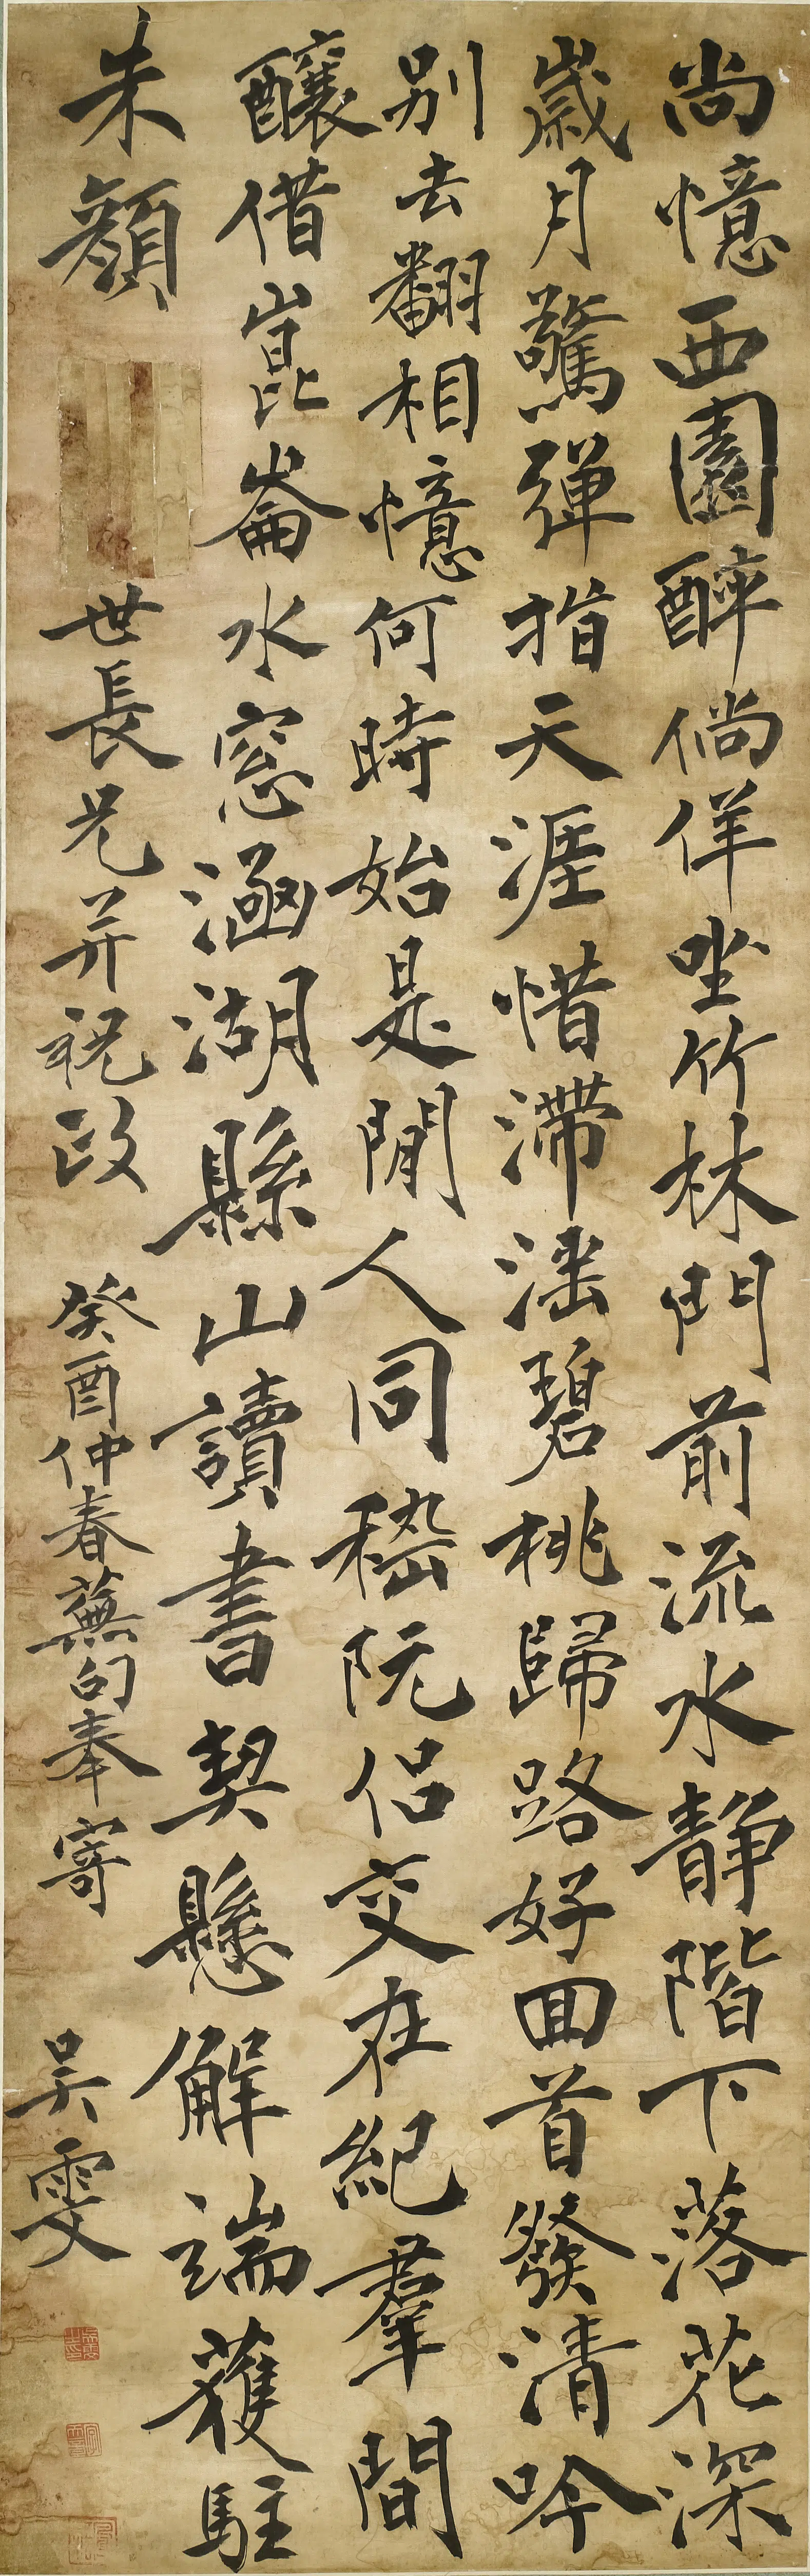 尚憶西園醉倘佯坐竹林門前流水靜階下落花深
歲月驚彈指天涯惜滯淫碧桃歸路好回首發清吟
別去翻相憶何時始是閒人同嵇阮侶交在紀羣間
釀借崑崙水窓涵湖縣山讀書契懸解端獲駐
朱顏
世長兄并祝政
癸酉仲春蕪句奉寄
吳雯